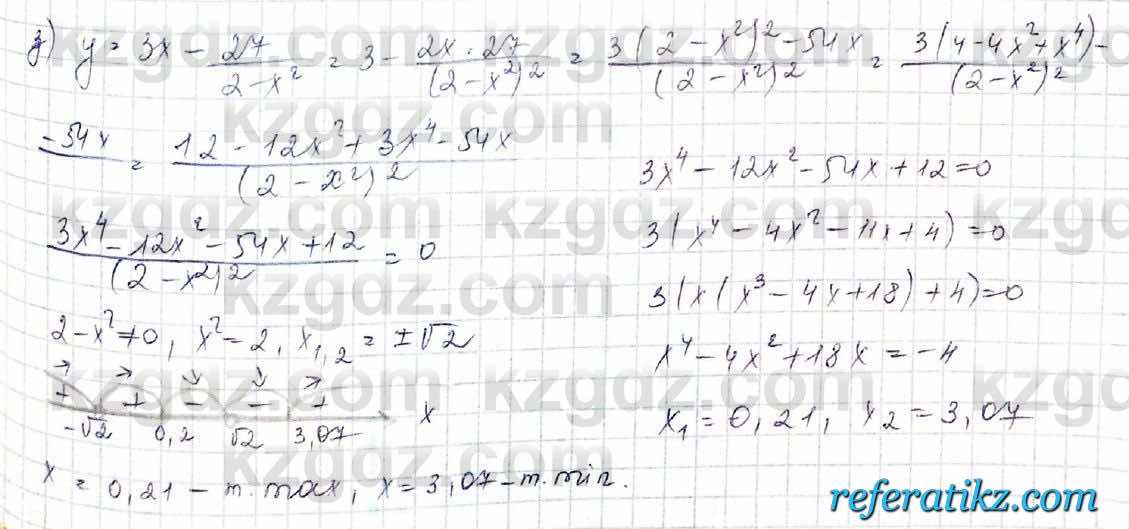 з) y = 3x - 27/(2 - x²) = 3 - (2x · 27)/(2 - x²)² = (3(2 - x²)² - 54x)/(2 - x²)² = (3(4 - 4x² + x⁴) -)/(2 - x²)²
- 54x = (12 - 12x² + 3x⁴ - 54x)/(2 - x²)²
(3x⁴ - 12x² - 54x + 12)/(2 - x²)² = 0
2 - x² ≠ 0, x² = 2, x₁,₂ = ±√2
→ → ↘ ↘ →
+ + - - +
-√2 0,2 √2 3,07 x
x = 0,21 - т.max, x = 3,07 - т.min.
3x⁴ - 12x² - 54x + 12 = 0
3(x⁴ - 4x² - 11x + 4) = 0
3(x(x³ - 4x + 18) + 4) = 0
x⁴ - 4x² + 18x = -4
x₁ = 0,21, x₂ = 3,07
kzgdz.com
referatikz.com